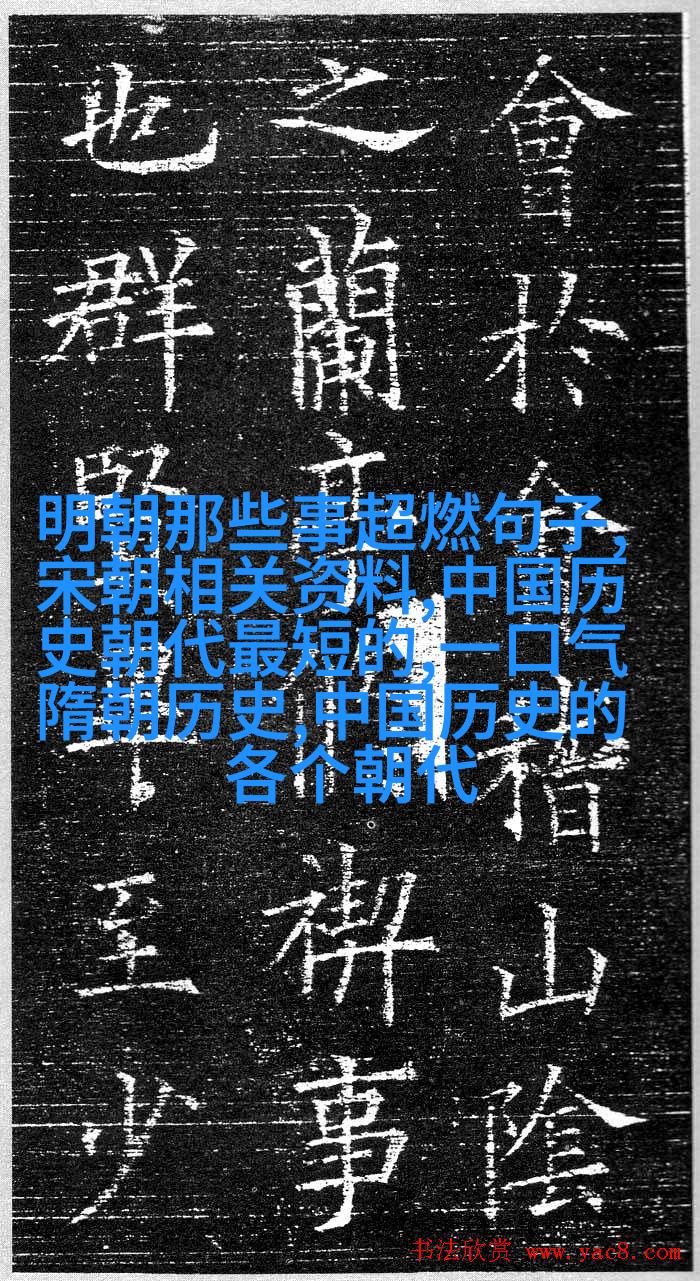 會於會稽山陰
之蘭亭禊事
也群賢畢至少
明朝那些事超燃句子,
宋朝相关资料,中国历
史朝代最短的,一口气
隋朝历史,中国历史的
各个朝代
书法欣赏 www.yac8.com